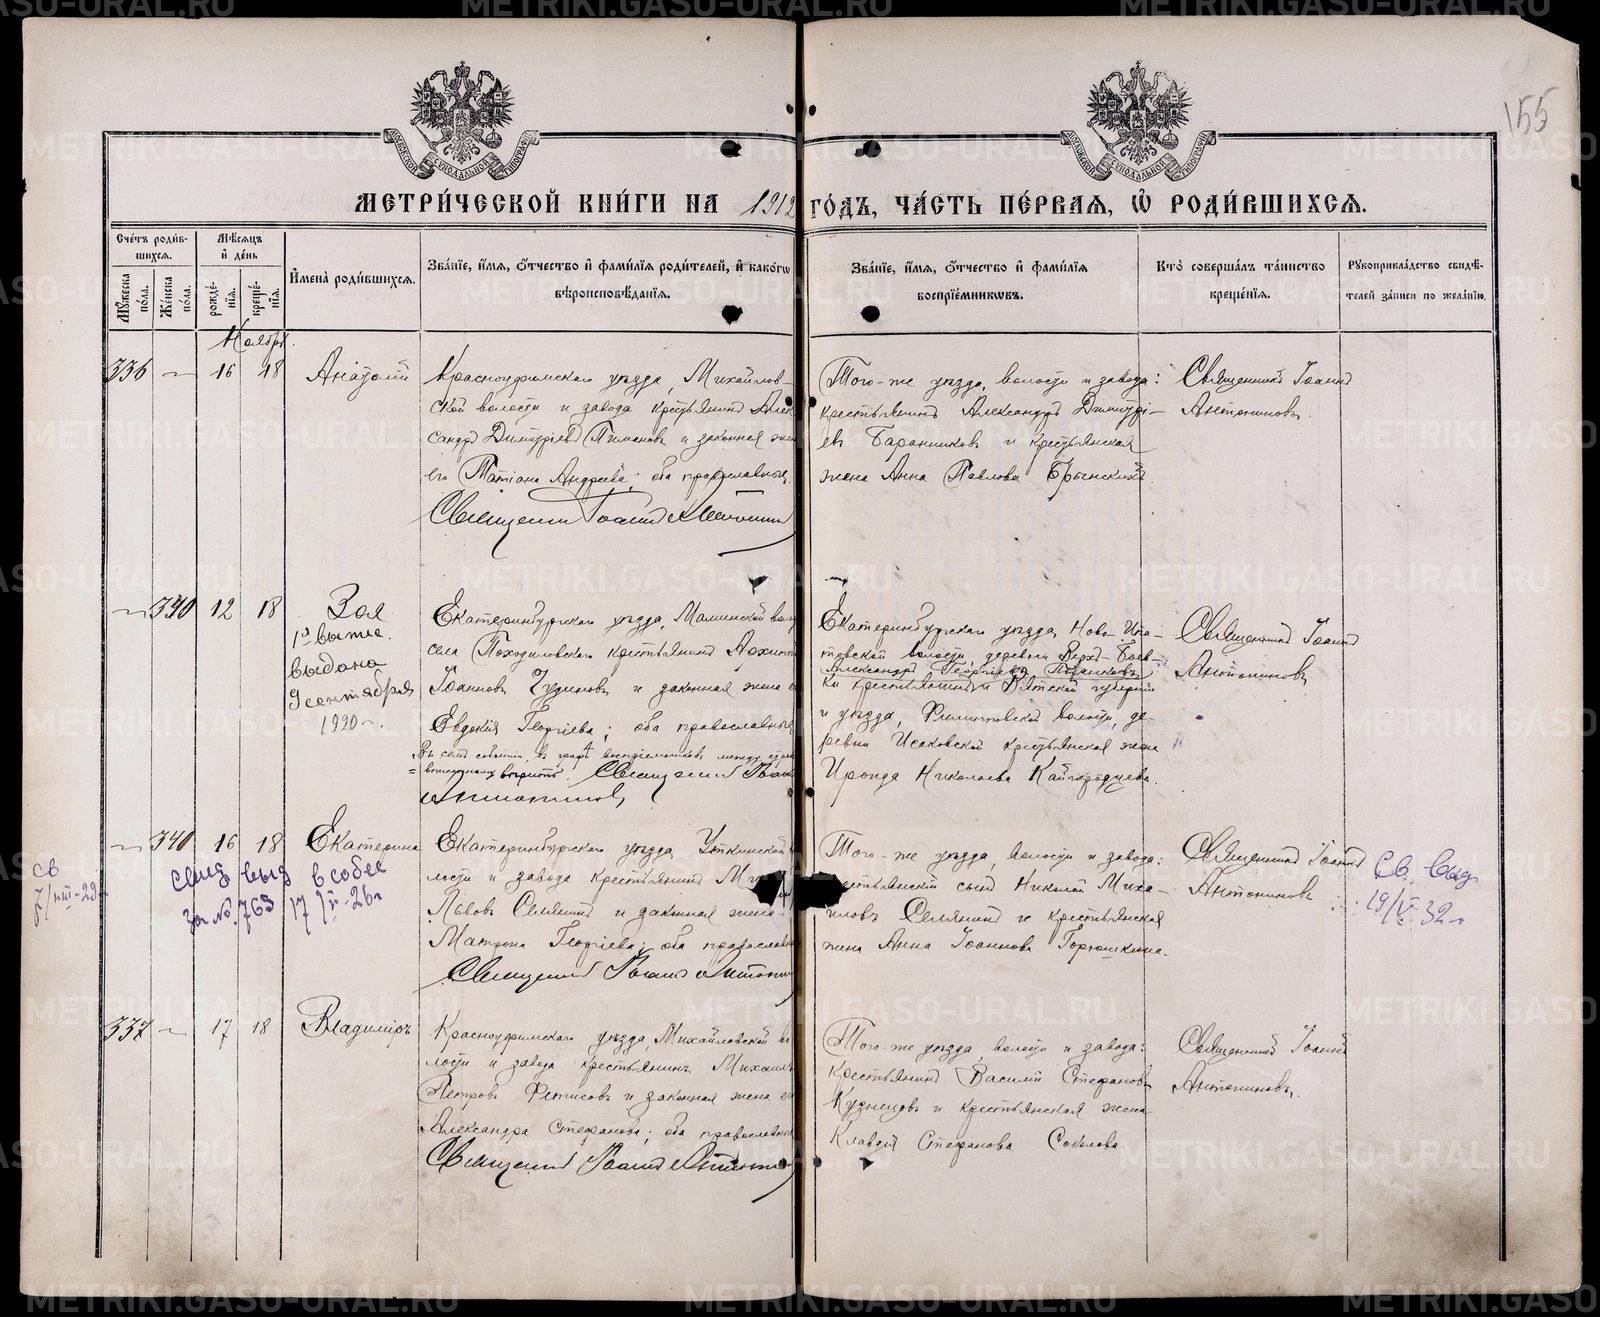 155
МЕТРИ́ЧЕСКОЙ КНИ́ГИ НА 1912 ГО́ДЪ, ЧА́СТЬ ПЕ́РВАЯ, Ѡ РОДИ́ВШИХСЯ.
Сче́тъ роди́в-
шихся.
Мѣ́сяцъ
и҆ де́нь
Мꙋ́жеска по́ла.
Же́нска по́ла.
рожде́-
нїя.
креще́-
нїя.
И҆мена̀ роди́вшихся.
Зва́нїе, и҆́мя, ѻ҆́тчество и҆ фами́лїя роди́телей, и҆ како́гѡ
вѣ́роисповѣ́данїя.
Зва́нїе, и҆́мя, ѻ҆́тчество и҆ фами́лїя
воспрїе́мникѡвъ.
Кто̀ соверша́лъ та́инство
креще́нїя.
Рꙋкоприкла́дство свидѣ́-
телей за́писи по жела́нїю.
Ноябрь.
336 — 16 18 Анатолій
Красноуфимскаго уѣзда, Михайлов-
ской волости и завода крестьянинъ Алек
сандръ Димитріевъ Пиманов и законная жена
его Татіана Андреева; оба православные.
Священникъ Іоаннъ Антонинов
Того-же уѣзда, волости и завода:
крестьянинъ Александръ Димитрі-
евъ Баранниковъ и крестьянская
жена Анна Павлова Брынскихъ.
Священникъ Іоаннъ
Антониновъ.
— 340 12 18 Зоя
1я выпис.
Выдана
9 сентября
1920 г.
Екатеринбургскаго уѣзда, Маминской вол
села Походиловскаго крестьянинъ
Іоанновъ Чудиновъ и законная жена е
Евдокія Георгіева; оба православные
Въ семъ событіи, въ графѣ воспріемниковъ между
вѣрить. Священникъ Іоаннъ
Антониновъ
Екатеринбургскаго уѣзда, Ново-Ипа-
товской волости, деревни Верхъ-Боев-
Александръ Георгіевъ
ки крестьянинъ и Вятской губерніи
и уѣзда, Филипповской волости, де-
ревни Исаковской крестьянская жена
Ироида Николаева Кайгородцева.
Священникъ Іоаннъ
Антониновъ
— 340 16 18 Екатерина
св
свид выд в собес
за № 763 17/V-26 г
Екатеринбургскаго уѣзда, Уткинской
лости и завода крестьянинъ
Львовъ Селянинъ и законная жена
Матрона Георгіева; оба православн
Священникъ Іоаннъ Антонин
Того-же уѣзда, волости и завода:
крестьянскій сынъ Николай Миха-
иловъ Селянинъ и крестьянская
жена Анна Іоаннова Горюшкина.
Священникъ Іоаннъ
Антониновъ
Св. выд
19/V 32 г
337 — 17 18 Владиміръ
Красноуфимскаго уѣзда, Михайловской во
лости и завода крестьянинъ Михаилъ
Петровъ Фетисовъ и законная жена его
Александра Стефанова; оба православные
Священникъ Іоаннъ Антонин
Того-же уѣзда, волости и завода:
крестьянинъ Василій Стефановъ
Кузнецовъ и крестьянская жена
Клавдія Стефанова Соколова.
Священникъ Іоаннъ
Антониновъ.
METRIKI.GASO-URAL.RU